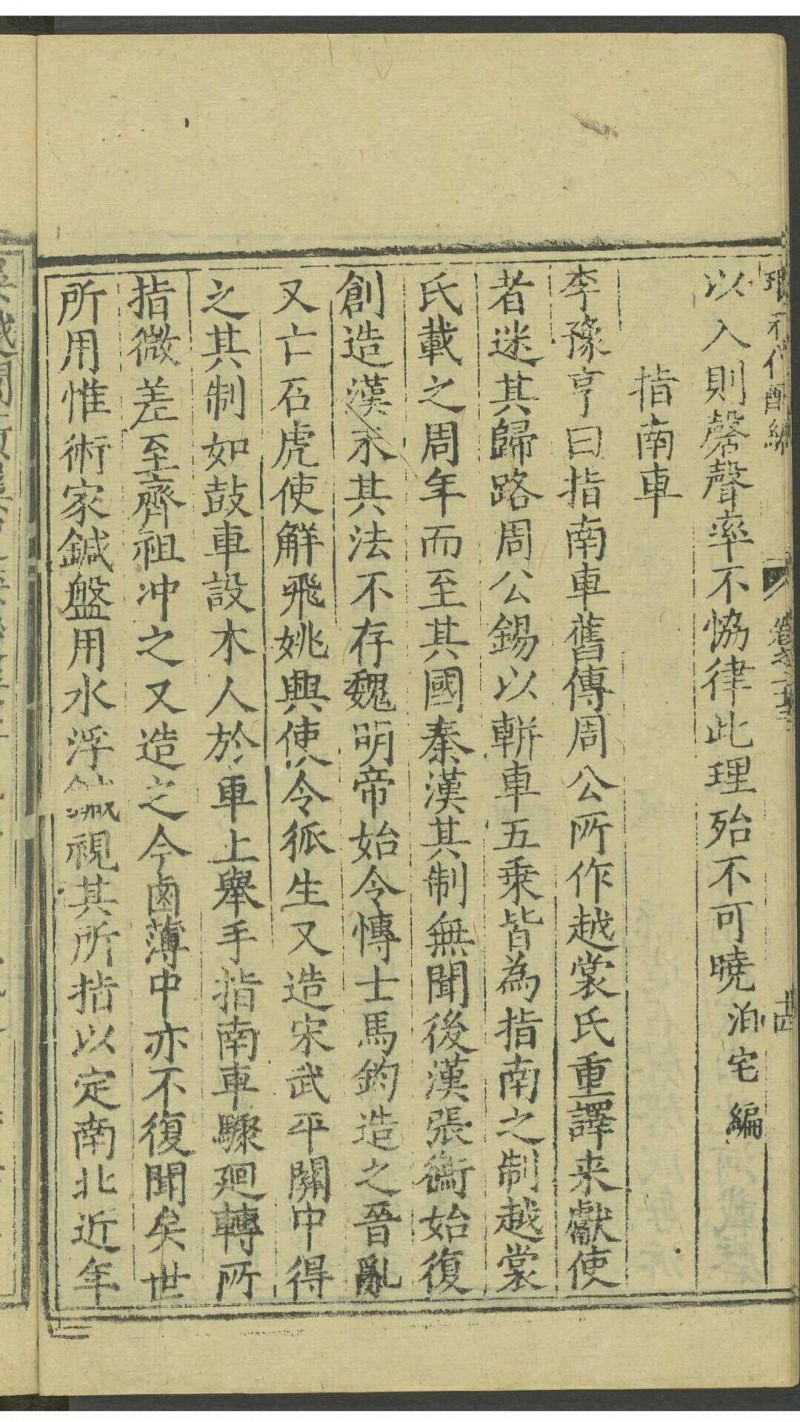 以入則磬聲率不恊律此理殆不可曉 泊宅編
指南車
李豫亨曰指南車舊傳周公所作越裳氏重譯来獻使
者迷其歸路周公錫以軿車五乘皆為指南之制越裳
氏載之周年而至其國秦漢其制無聞後漢張衡始復
創造漢末其法不存魏明帝始令博士馬鈞造之晉亂
又亡石虎使解飛姚興使令狐生又造宋武平關中得
之其制如鼓車設木人於車上舉手指南車驟廻轉所
指微差至齊祖冲之又造之今鹵薄中亦不復聞矣世
所用惟術家鍼盤用水浮鍼視其所指以定南北近年